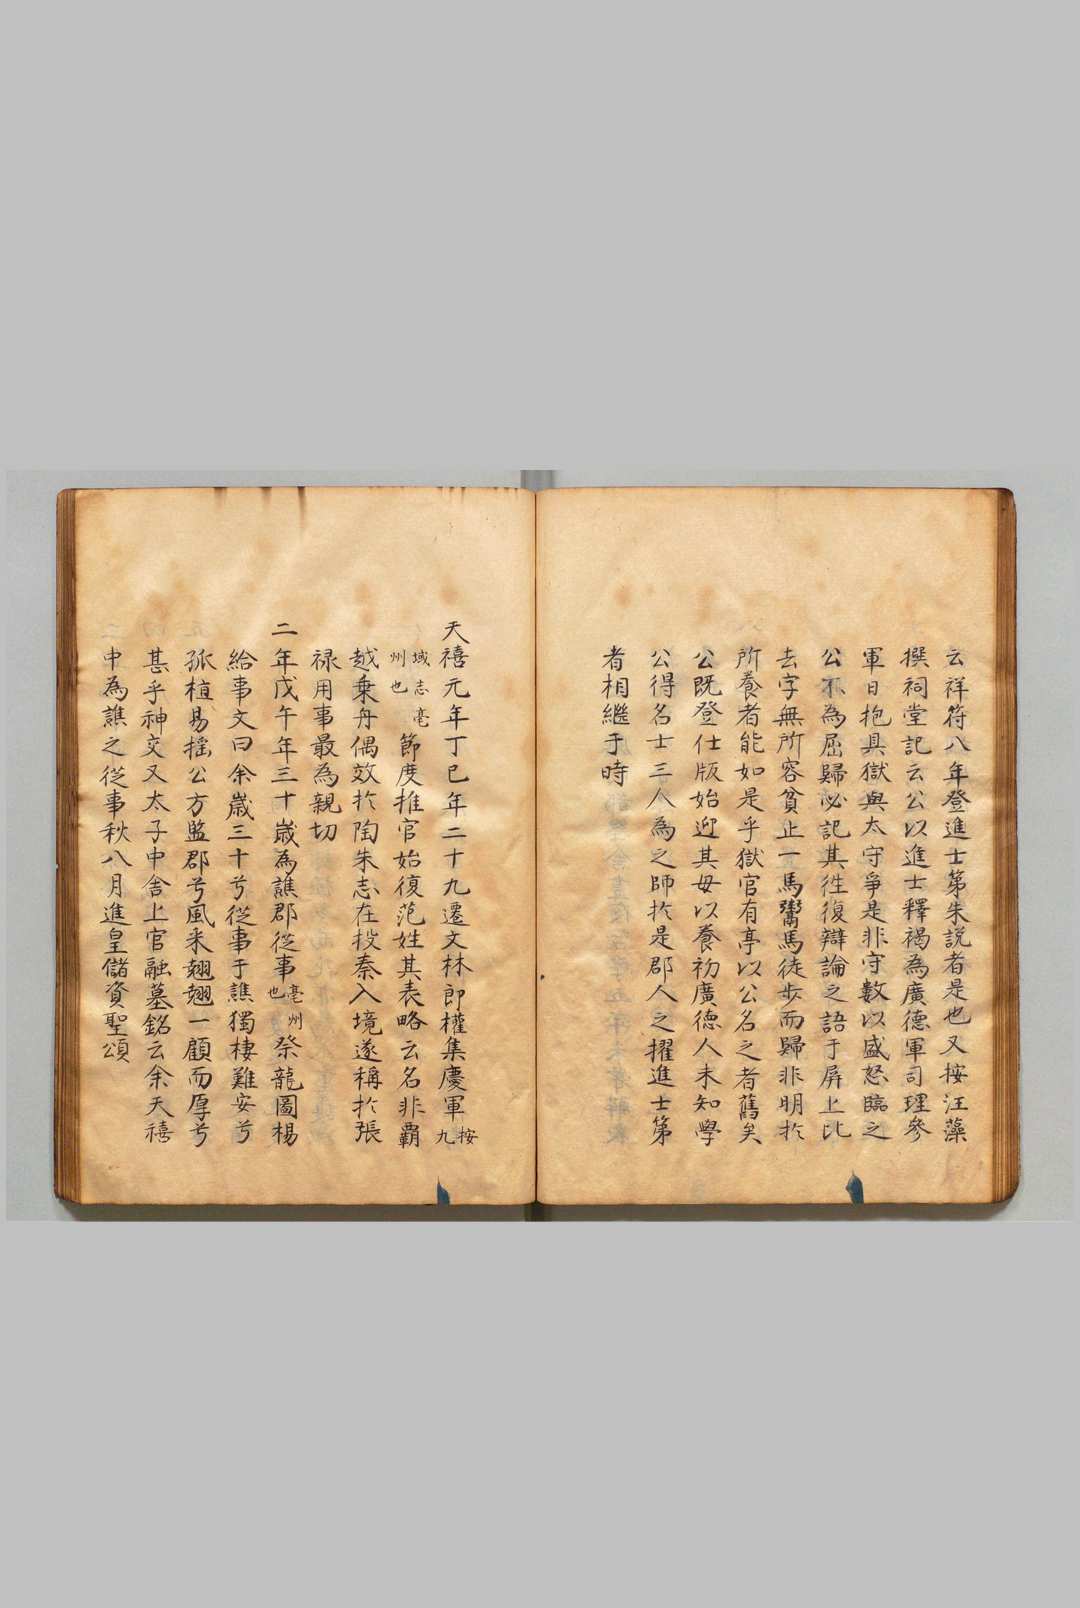 云祥符八年登進士第朱説者是也又按汪藻
撰祠堂記云公以進士釋褐為廣德軍司理參
軍日抱具獄與太守爭是非守數以盛怒臨之
公不為屈歸必記其徃復辯論之語于屏上比
去字無所容貧止一馬鬻馬徒步而歸非明於
所養者能如是乎獄官有亭以公名之者舊矣
公既登仕版始迎其母以養初廣德人未知學
公得名士三人為之師於是郡人之擢進士第
者相繼于時
天禧元年丁巳年二十九遷文林郎權集慶軍按九
域志亳州也節度推官始復范姓其表略云名非霸
越乗舟偶效於陶朱志在投秦入境遂稱於張
禄用事最為親切
二年戊午年三十嵗為譙郡從事亳州也祭龍圖楊
給事文曰余嵗三十兮從事于譙獨棲難安兮
孤植易摇公方監郡兮風采翹翹一顧而厚兮
甚乎神交又太子中舎上官融墓銘云余天禧
中為譙之從事秋八月進皇儲資聖頌